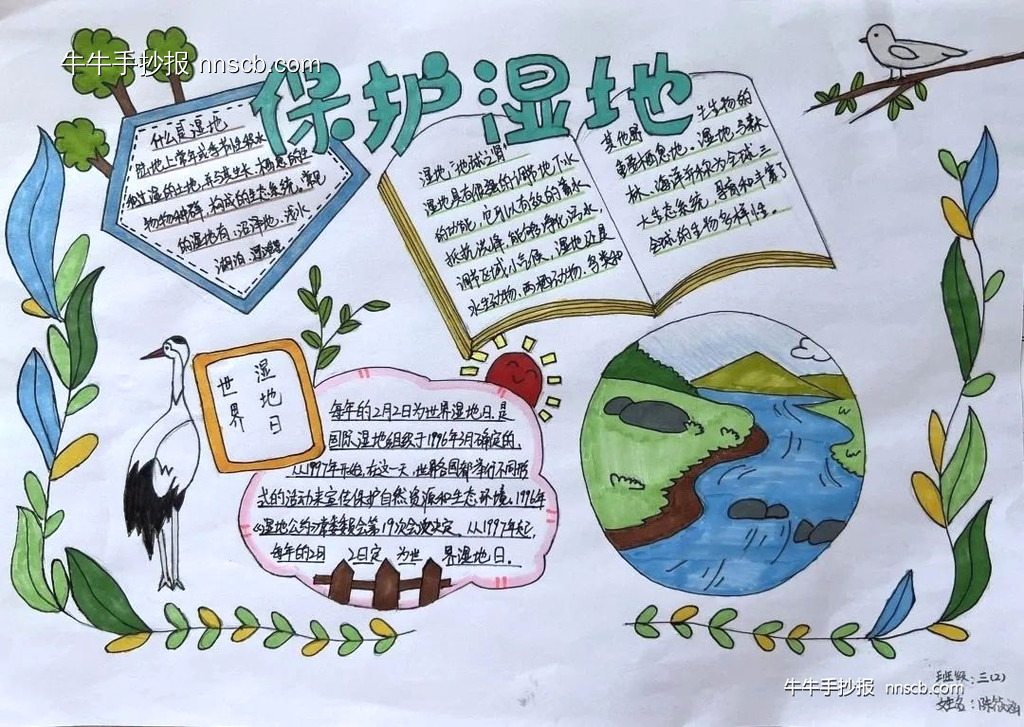 牛牛手抄报 nnscb.com
保护湿地
什么是湿地
陆地上常年或季节性积水
和过湿的土地,并与其生长、栖息的生
物物种群,构成的生态系统。常见
的湿地有:沼泽地、浅水
湖泊、
湿地:"地球之肾"
湿地具有很强的调节地下水
的功能,它可以有效的蓄水
抵抗洪峰,能够净化污水
调节区域小气候,湿地还是
水生动物、两栖动物、鸟类和
其他野生生物的
重要栖息地。湿地与森
林、海洋并称为全球三
大生态系统,孕育和丰富了
全球的生物多样性。
世界
湿地日
每年的2月2日为世界湿地日是
国际湿地组织于1996年3月确定的,
从1997年开始,在这一天,世界各国都举行不同形
式的活动来宣传保护自然资源和生态环境。1996年
《湿地公约》常委委员会第19次会议决定,从1997年起,
每年的2月 2日定 为世 界湿地日。
班级:三(2)
牛牛手抄报 nnscb.com
姓名:陈